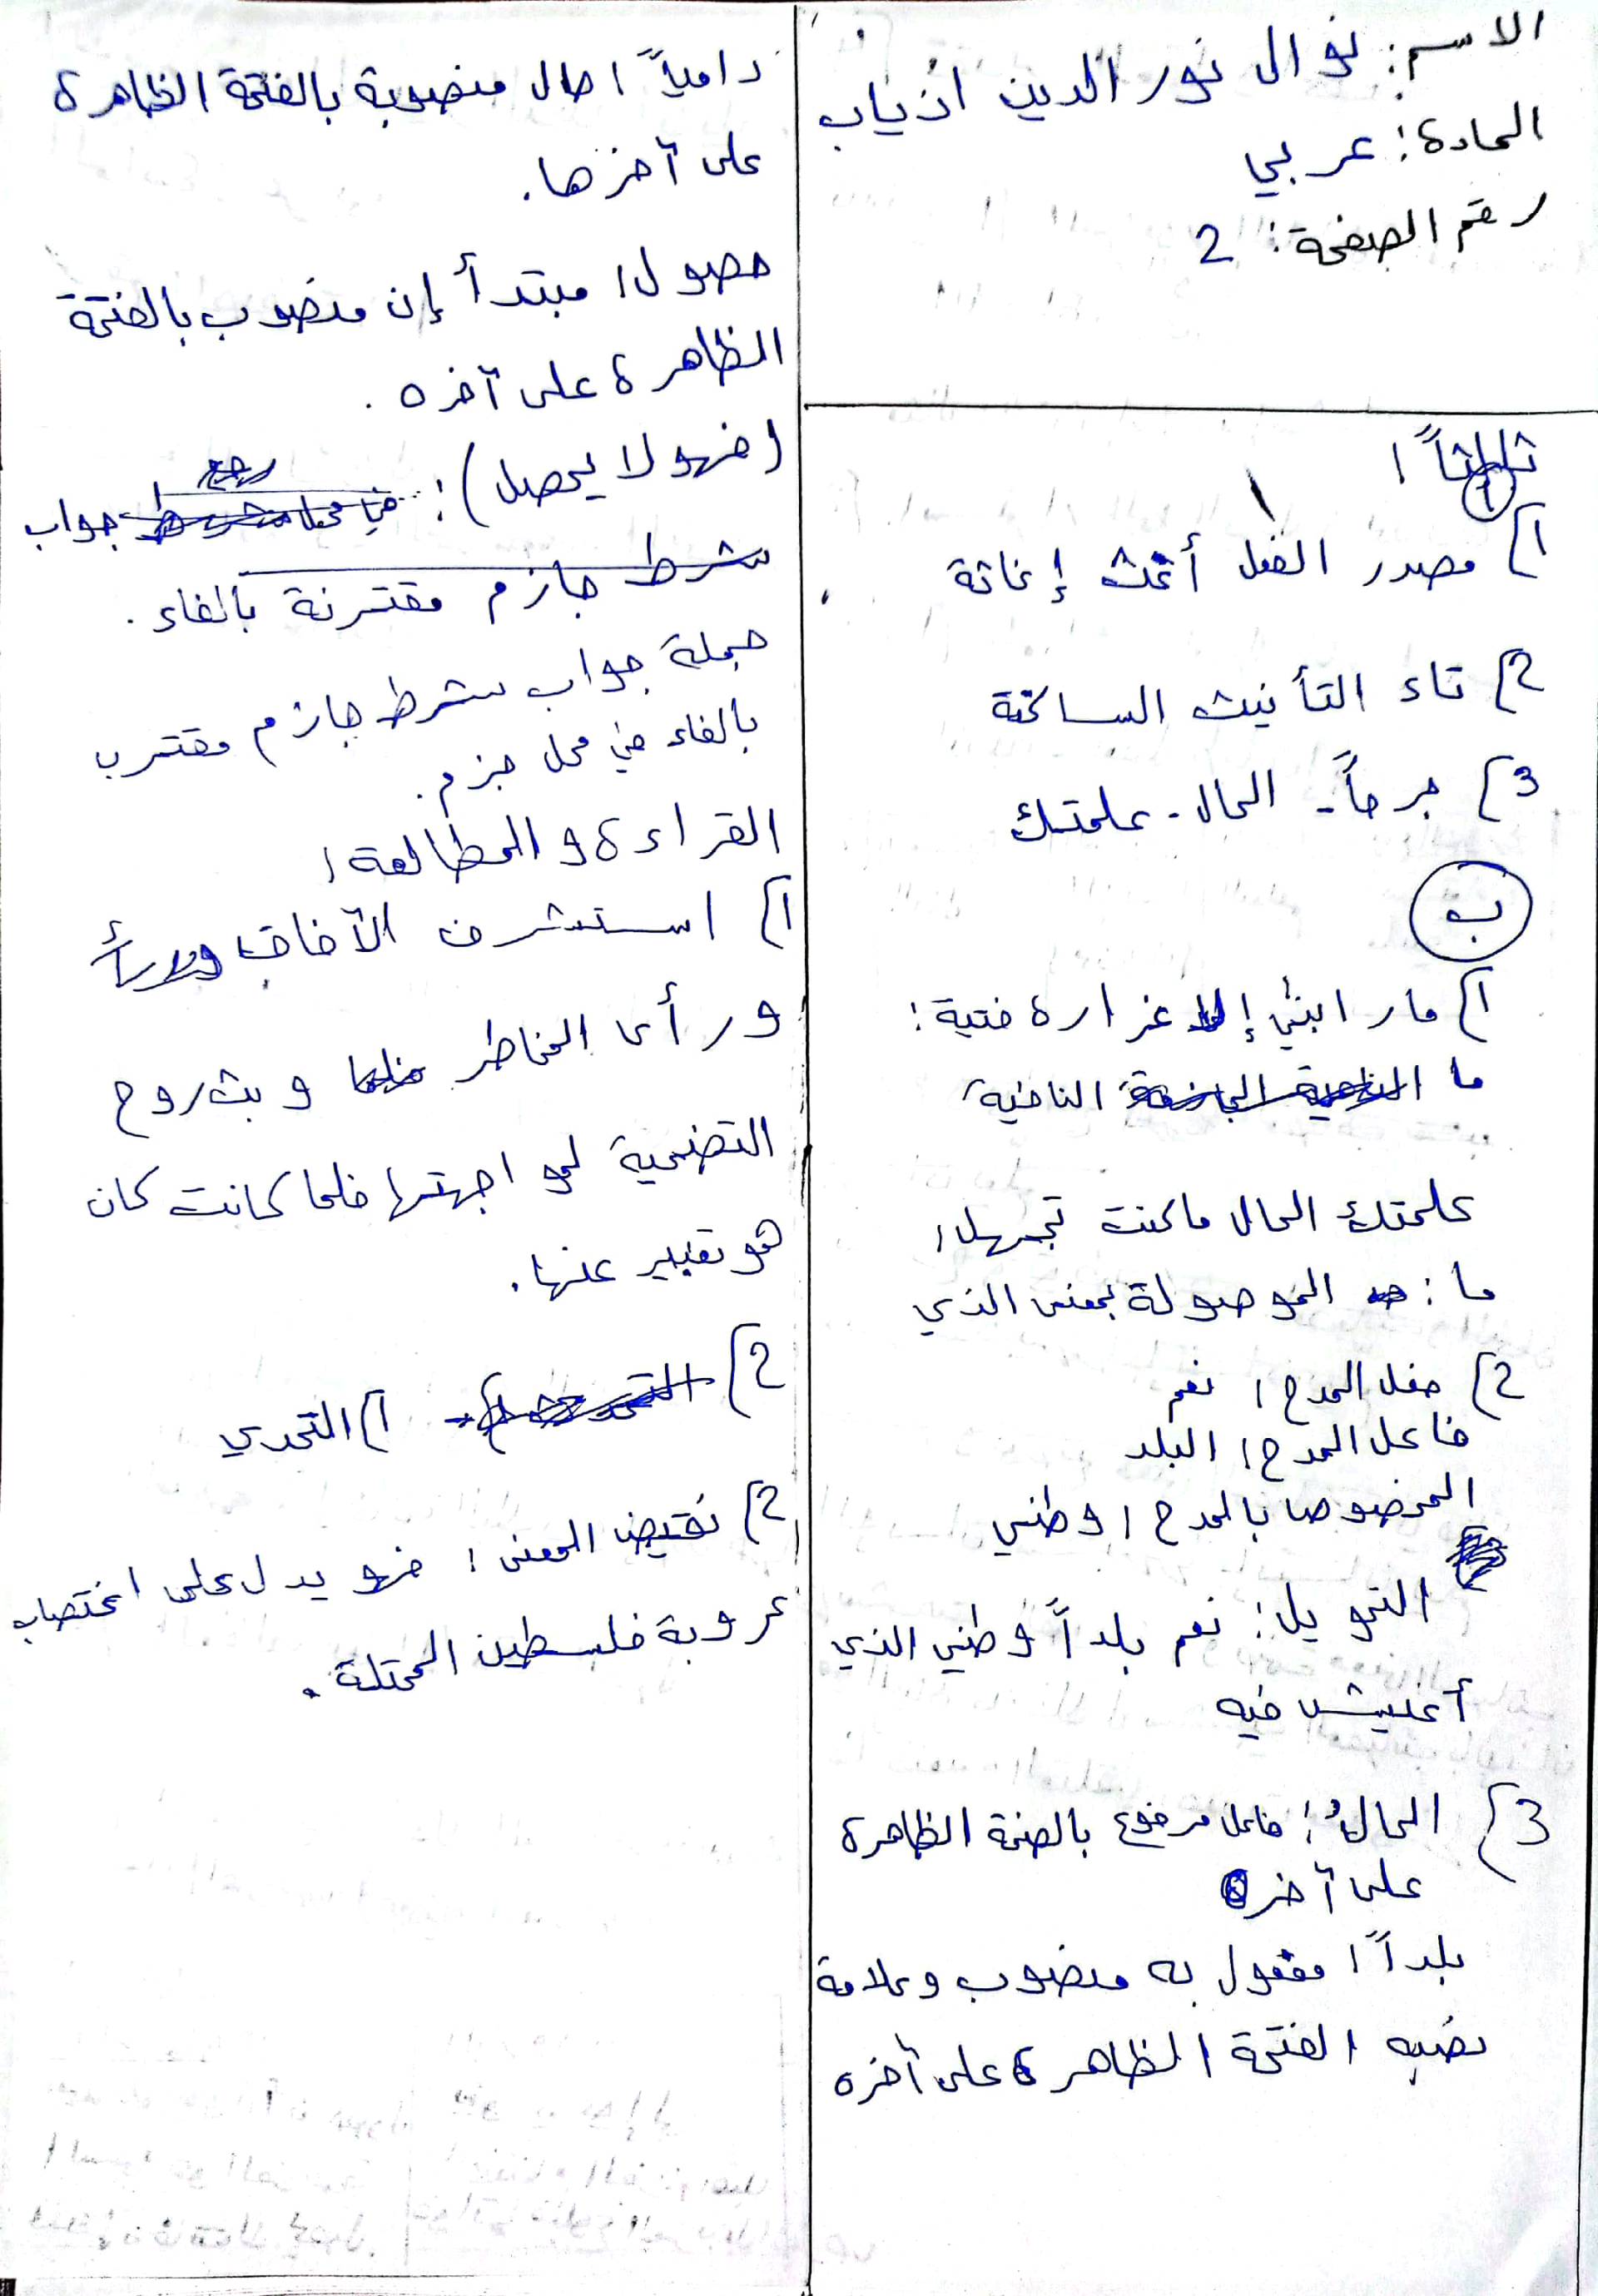 الاسم: نوال نور الدين اذياب
المادة: عربي
رقم الصفحة: 2
ثالثاً:
1) مصدر الفعل أغث إغاثة
2) تاء التأنيث الساكنة
3) جرحاً - الحال - علمتك
ب
1) مار ابني إلا غرارة فتية:
ما النافية
علمتك الحال ما كنت تجهل:
ما: الموصولة بمعنى الذي
2) فعل المدح: نعم
فاعل المدح: البلد
المخصوص بالمدح: وطني
التحويل: نعم بلداً وطني الذي
أعيش فيه
3) الحالُ: فاعل مرفوع بالضمة الظاهرة
على آخره
بلداً: مفعول به منصوب وعلامة
نصبه الفتحة الظاهرة على آخره
حال منصوبة بالفتحة الظاهرة
على آخرها.
حصول: مبتدأ إن منصوب بالفتحة
الظاهرة على آخره.
(فهو لا يحصل): جواب
شرط جازم مقترنة بالفاء.
جملة جواب شرط جازم مقترب
بالفاء في محل جزم.
القراءة والمطالعة:
1) استشرف الآفاق
ورأى المخاطر وبث روح
التضحية لمواجهتها فلما كانت كان
هو تعبير عنها.
2) 1) التحدي
2) نقيض المعنى: فهو يدل على اغتصاب
عروبة فلسطين المحتلة.